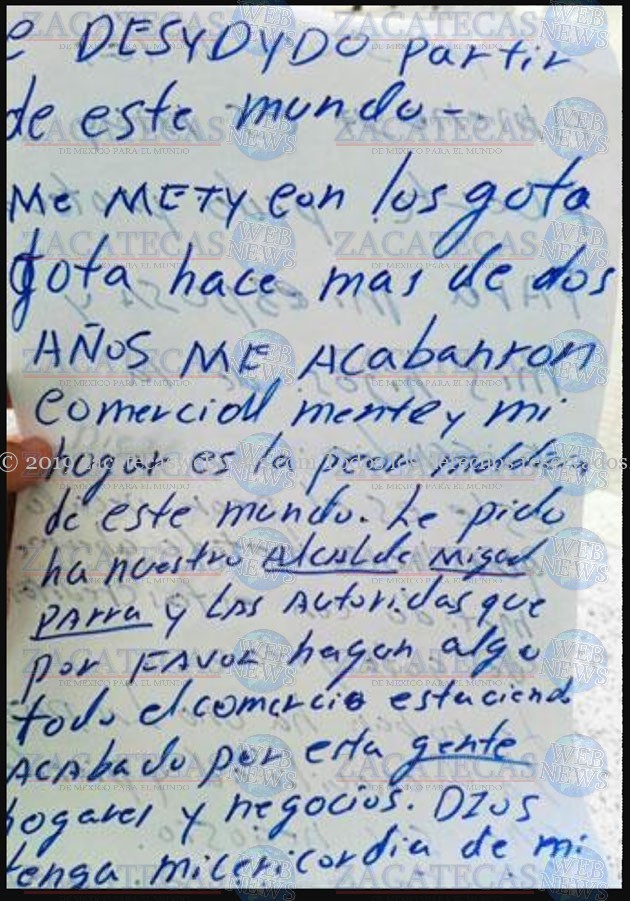 e DESYDYDO partir
de este mundo--
Me METY con los gota
gota hace mas de dos
AÑOS ME Acabanron
comercial mente y mi
hogar es la peor
de este mundo. Le pido
ha nuestro Alcalde Migel
PARRA y LAS Autoridas que
por FAVOR hagan algo
todo el comercio estaciendo
ACAbado por esta gente
hogares y negocios. DIOS
tenga micericordia de mi
ZACATECAS
DE MÉXICO PARA EL MUNDO
WEB
NEWS